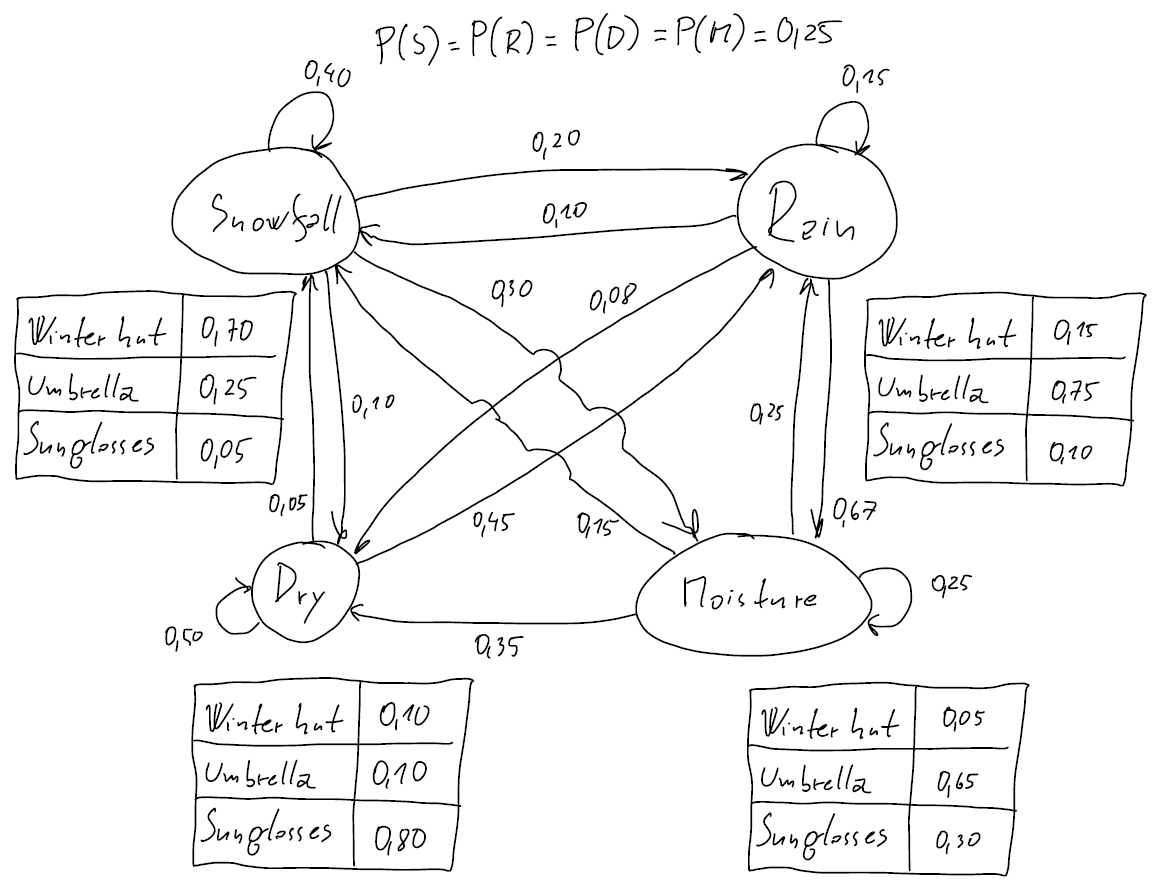 P(S) = P(R) = P(D) = P(M) = 0,25
0,40
0,15
0,20
Snowfall
0,10
Rain
0,30
0,08
Winter hut 0,70
Umbrella 0,25
Sunglosses 0,05
0,10
0,25
Winter hut 0,15
Umbrella 0,75
Sunglosses 0,10
0,05
0,45
0,15
0,67
Dry
Moisture
0,25
0,50
0,35
Winter hut 0,10
Umbrella 0,10
Sunglosses 0,80
Winter hut 0,05
Umbrella 0,65
Sunglosses 0,30